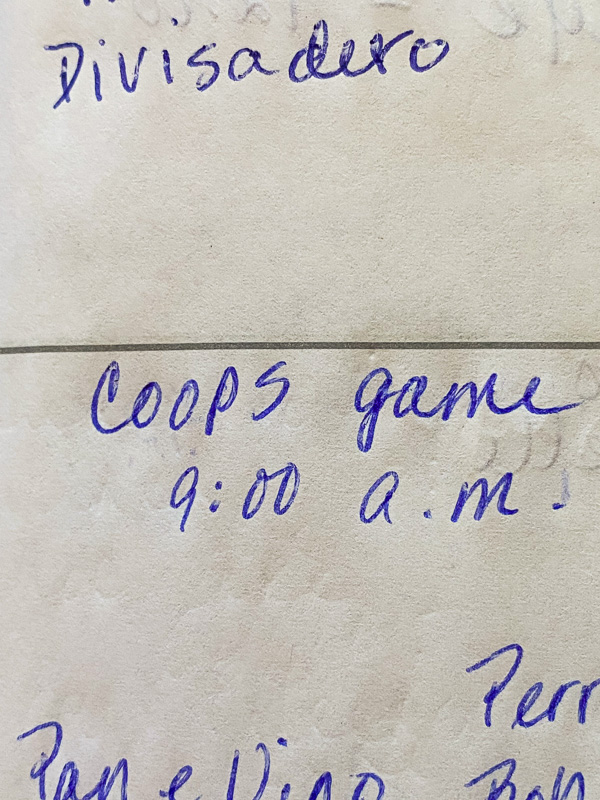 Divisadero
Coops game
9:00 a.m.
Perr
Pan e Vino